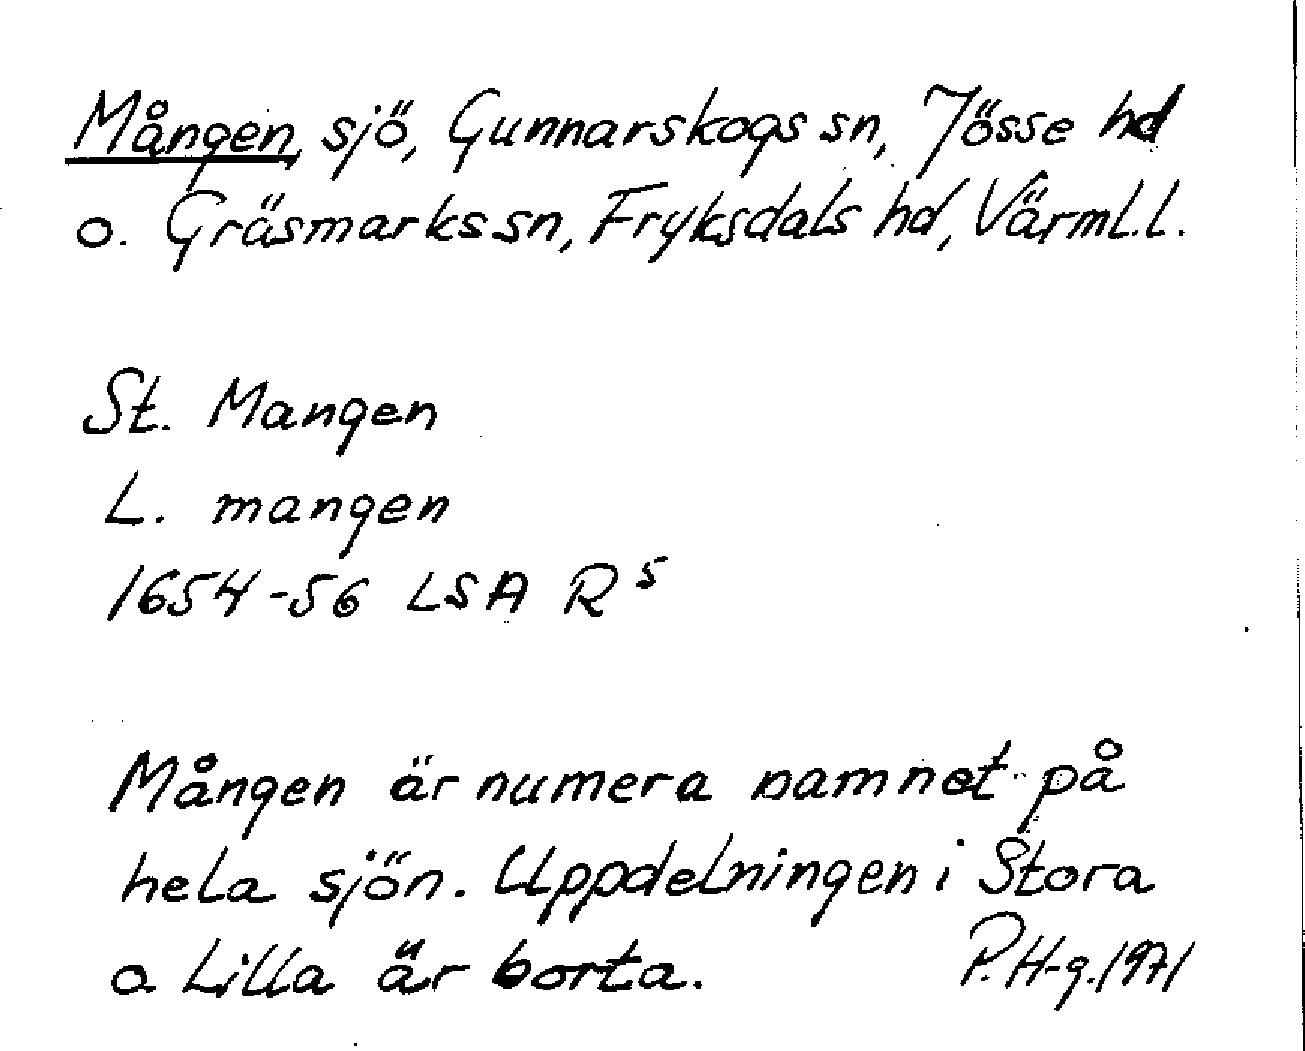 Mången, sjö, Gunnarskogs sn, Jösse hd
o. Gräsmarks sn, Fryksdals hd, Värml.l.
St. Mangen
L. mangen
1654-56 LSA R 5
Mången är numera namnet på
hela sjön. Uppdelningen i Stora
o Lilla är borta. P.H-g. 1971